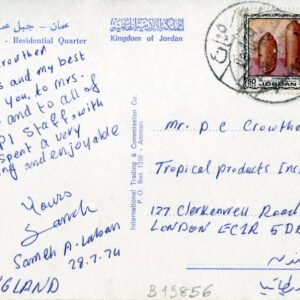 عمان - جبل عمان
- Residential Quarter
المملكة الأردنية الهاشمية
Kingdom of Jordan
Crowther
s and my best
you, to Mrs.
and to all of
PI Staff with
spent a very
ng and enjoyable
Yours
Sameh
Sameh A.
28.7.74
GLAND
International Trading & Commission Co.
P. O. Box 1338 - Amman
JORDAN
Mr. P C Crowther
Tropical products Ins
127 Clerkenwell Road
LONDON EC1R 5D
B19856